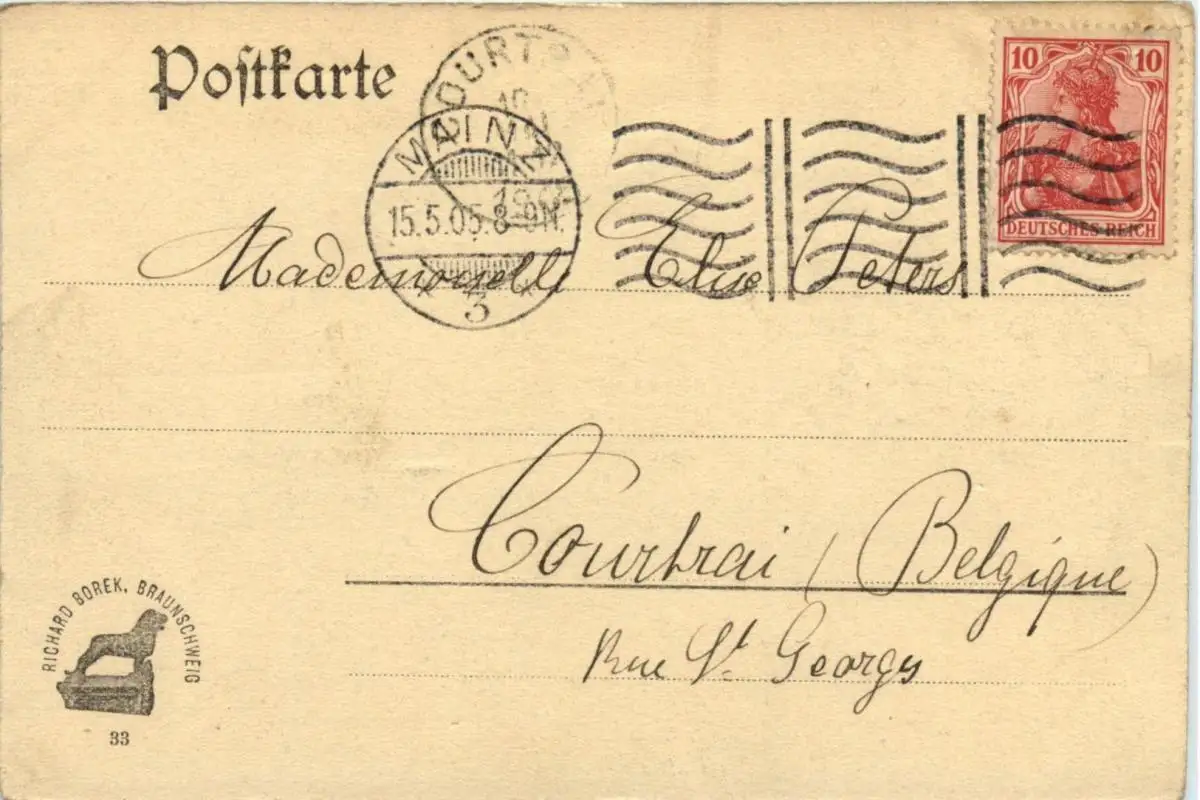 Postkarte
COURTRAI
MAINZ
15.5.05.8-9N.
* 3 *
10 10
DEUTSCHES REICH
Mademoiselle Elise Peters
Courtrai (Belgique)
Rue St Georges
RICHARD BOREK, BRAUNSCHWEIG
33